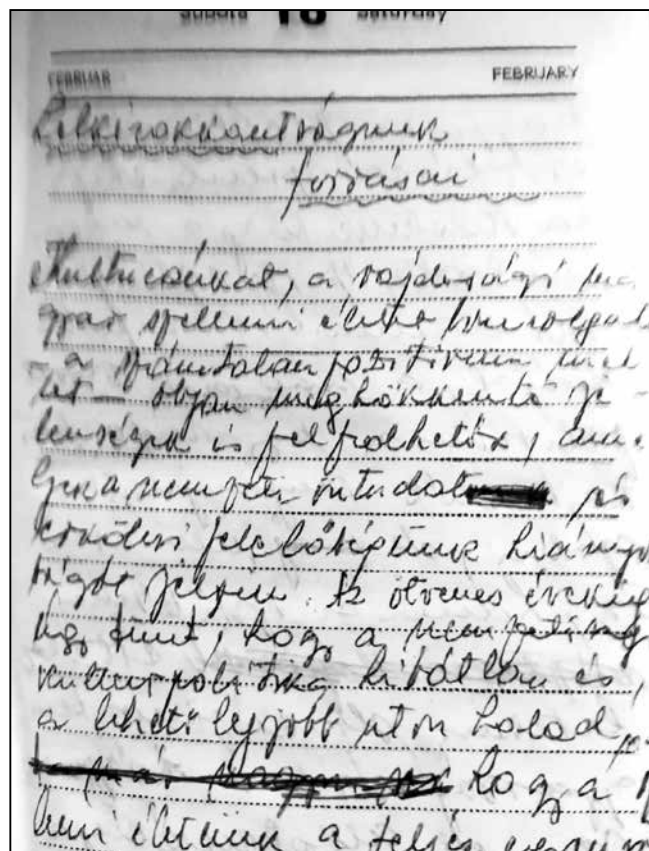 Subota 18 Saturday
FEBRUAR FEBRUARY
Lelkirokkantságunk
forrásai
Kultúránkat, a vajdasági ma
gyar szellemi életet
a számtalan pozitívum mel
lett — olyan meghökkentő je-
lenségek is felfedhetők, ame
lyek a nemzeti öntudat és
erkölcsi felelősségünk hiányos
ságát jelzik. Az ötvenes évekig
úgy tűnt, hogy a nemzetiség
kultúrpolitika hibátlan és
a lehető legjobb úton halad,
hogy a
lemi életünk a teljes